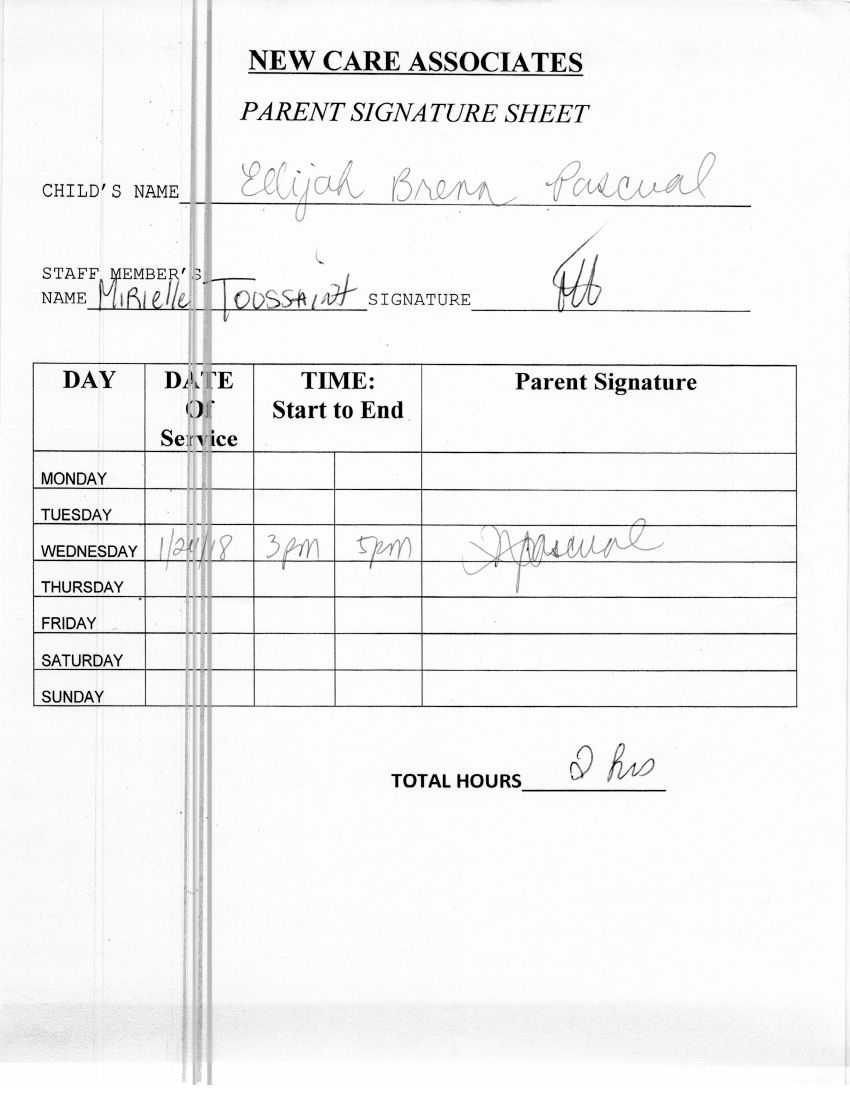 NEW CARE ASSOCIATES
PARENT SIGNATURE SHEET
CHILD'S NAME Ellijah Brenn Pascual
STAFF MEMBER'S
NAME Mirielle Toussaint SIGNATURE
DAY DATE Of Service TIME: Start to End Parent Signature
MONDAY
TUESDAY
WEDNESDAY 1/24/18 3pm 5pm Pascual
THURSDAY
FRIDAY
SATURDAY
SUNDAY
TOTAL HOURS 2 hrs